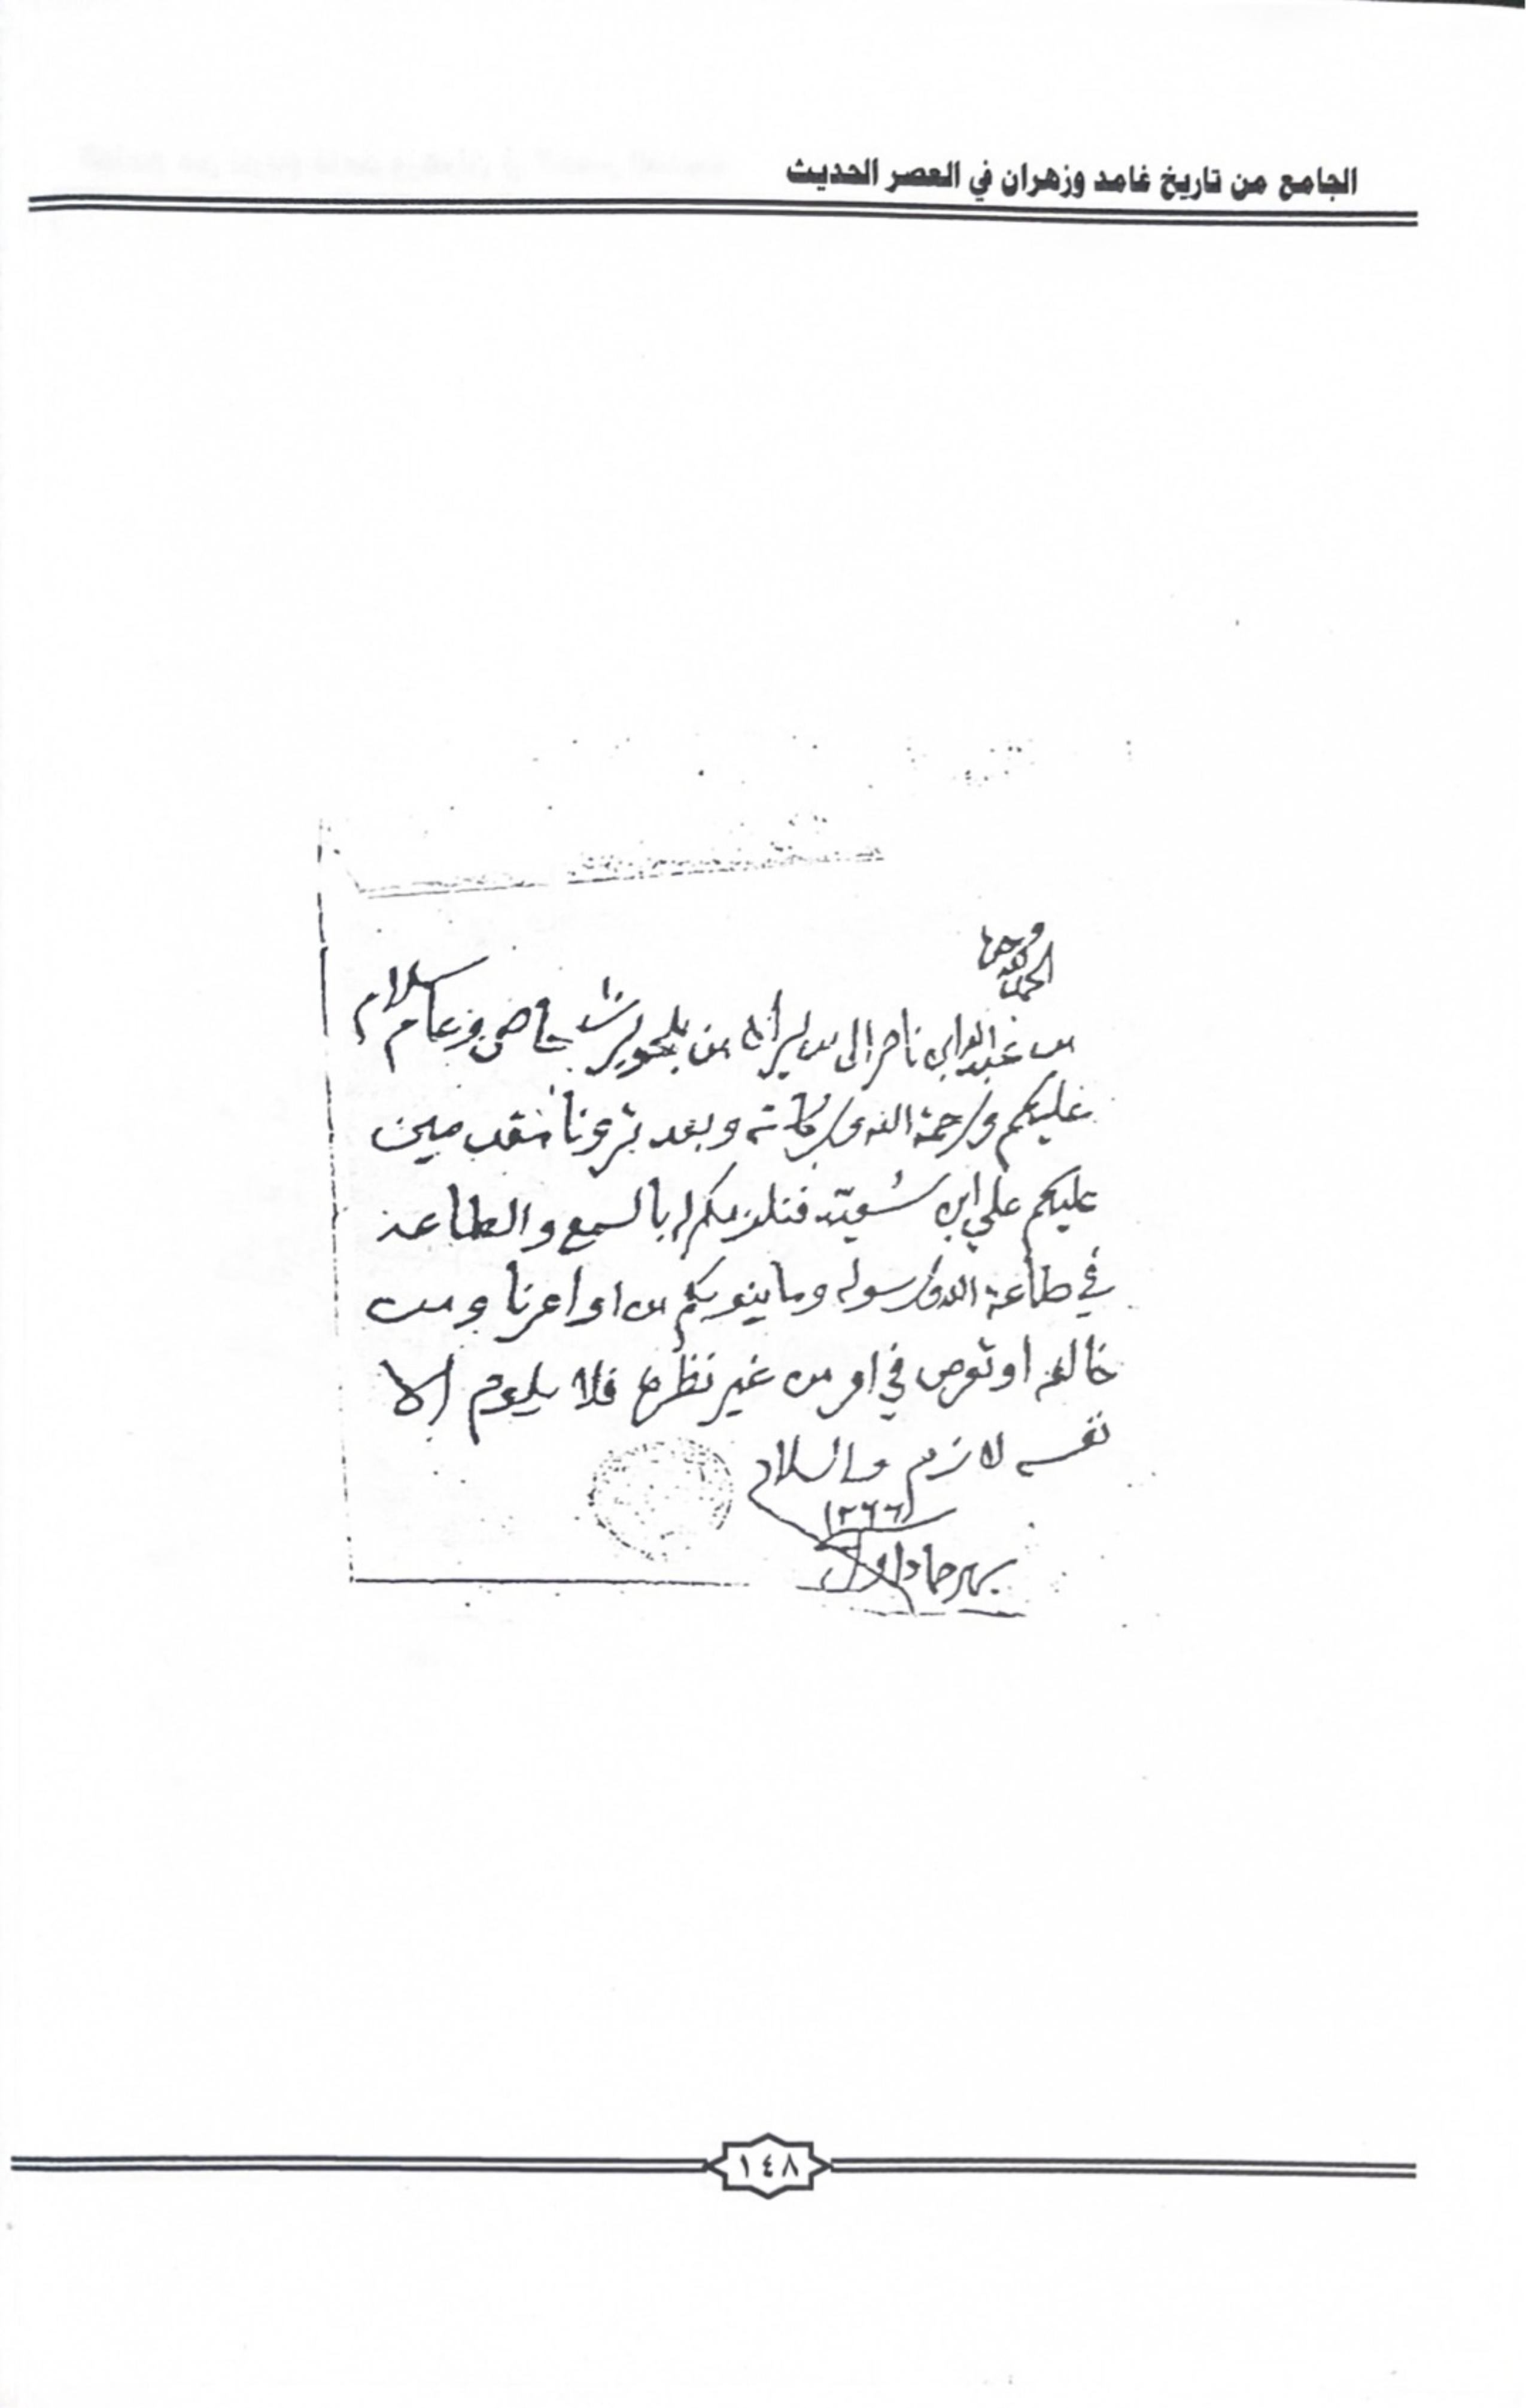 الجامع من تاريخ غامد وزهران في العصر الحديث
الحمد لله وحده
من عبد الله ابن ناصر الى من يراه من بلحويرث خاص وعام سلام
عليكم ورحمة الله وبركاته وبعد ترونا مقدمين
عليكم علي ابن فنلزمكم بالسمع والطاعة
في طاعة الله ورسوله وما ينوبكم من اوامرنا ومن
خالف او تعرض في امر من غير نظره فلا يلوم الا
نفسه لازم والسلام
١٢٦٦
جماد اول
١٤٨